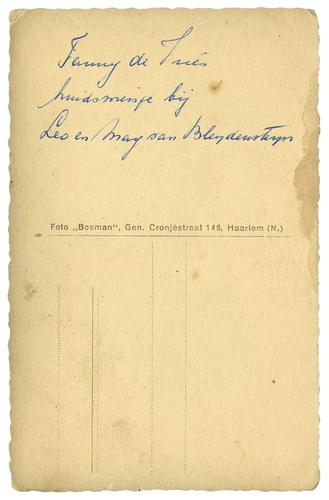 Fanny de Vriés
huidsmeisje bij
Leo en May van Bleydensteyn
Foto „Bosman", Gen. Cronjéstraat 146, Haarlem (N.)